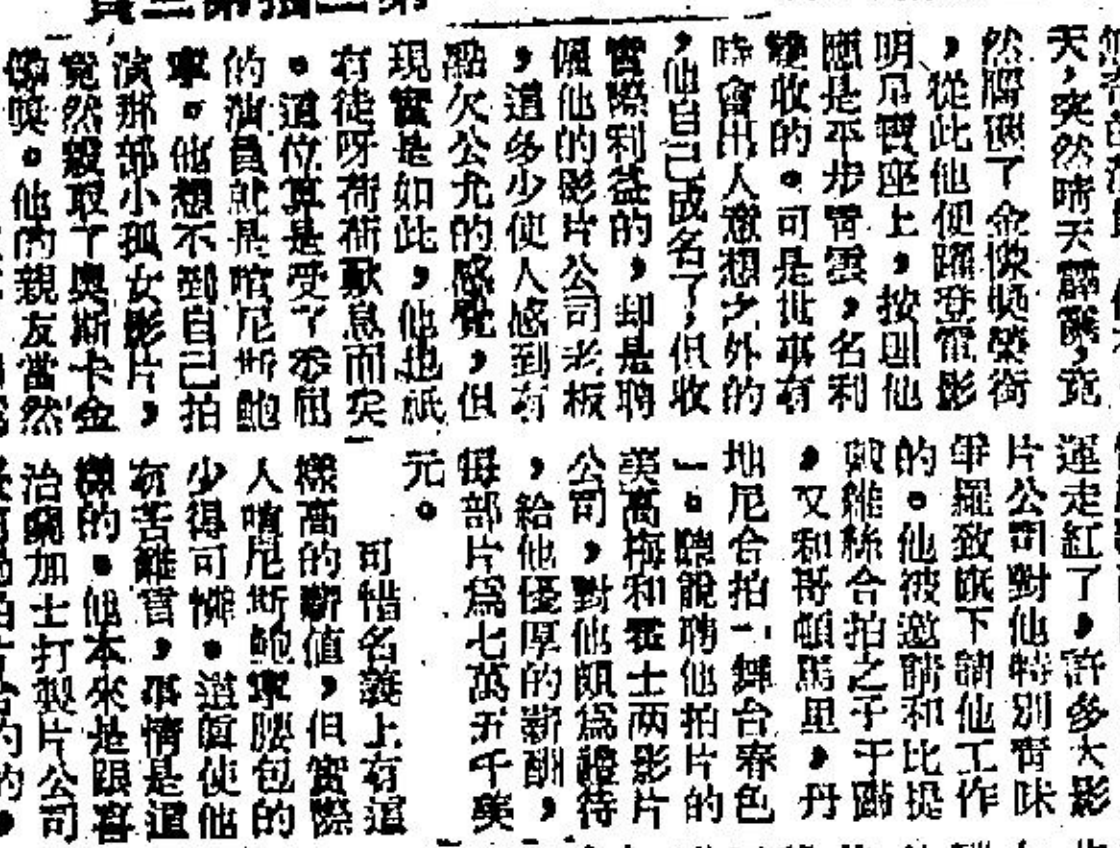 第三張第三頁
天,突然晴天霹靂,竟
然膺選了金像獎榮銜
,從此他便躍登電影
明星寶座上,按理他
應是平步青雲,名利
雙收的。可是世事有
時會出人意想之外的
,他自己成名了,但收
實際利益的,却是聘
僱他的影片公司老板
,這多少使人感到有
點欠公允的感覺,但
現實是如此,他也祇
有徒呀荷荷歎息而矣
。這位算是受了委屈
的演員就是喧尼斯鮑
寧。他想不到自己拍
演那部小孤女影片,
竟然取了奧斯卡金
像獎。他的親友當然
運走紅了,許多大影
片公司對他特別青睞
爭羅致旗下請他工作
的。他被邀請和比提
戴維絲合拍之子于歸
,又和哥頓馬里,丹
地尼合拍一舞台春色
一。聽說聘他拍片的
美高梅和霍士两影片
公司,對他頗爲禮待
,給他優厚的薪酬,
每部片爲七萬五千美
元。
可惜名義上有這
樣高的薪值,但實際
人喧尼斯鮑寧腰包的
少得可憐。這眞使他
有苦難言,事情是這
樣的。他本來是跟喜
治蘭加士打製片公司